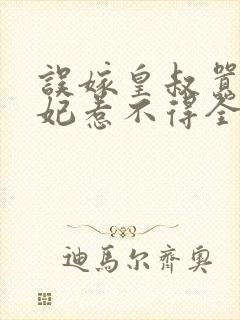 誤嫁皇叔醫
妃惹不得全
迪馬尔齊奧